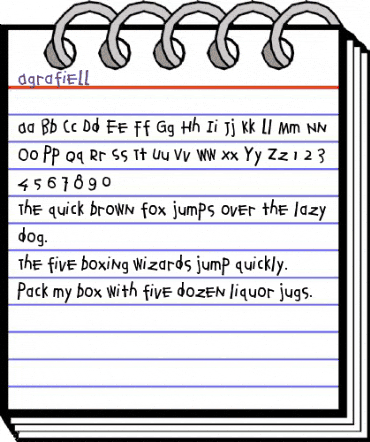 agrafiell
aa Bb Cc Dd EE Ff Gg Hh Ii Jj Kk Ll Mm NN
Oo Pp Qq Rr Ss Tt Uu Vv WW xx Yy Zz 1 2 3
4 5 6 7 8 9 0
The quick brown fox jumps over the lazy
dog.
The five boxing wizards jump quickly.
Pack my box with five dozen liquor jugs.